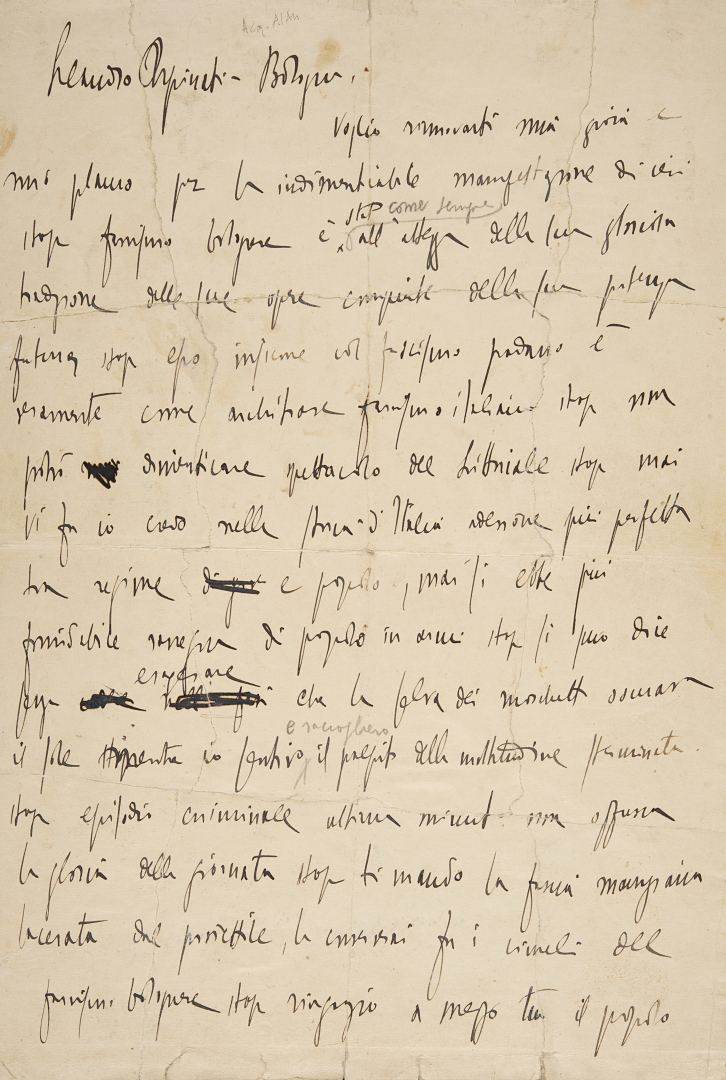 Acq. Alau
Leandro Arpinati - Bologna.
Voglio rinnovarti mia gioia e
mio plauso per la indimenticabile manifestazione di ieri
stop come sempre
stop fascismo bolognese è all'altezza della sua gloriosa
tradizione delle sue opere compiute della sua potenza
futura stop esso insieme col fascismo padano è
veramente come architrave fascismo italiano stop non
potrò dimenticare spettacolo del Littoriale stop mai
vi fu io credo nella storia d'Italia adesione più perfetta
tra regime e popolo, mai si ebbe più
formidabile rassegna di popolo in armi stop si può dire
esagerare
senza che la selva dei moschetti oscurava
e raccogliero
il sole mentre io sentivo il palpito della moltitudine sterminata
stop episodio criminale ultimo minuto non offusca
la gloria della giornata stop ti mando la fascia mauriziana
lacerata dal proiettile, la conserverai fra i cimeli del
fascismo bolognese stop ringrazio a mezzo tuo il popolo